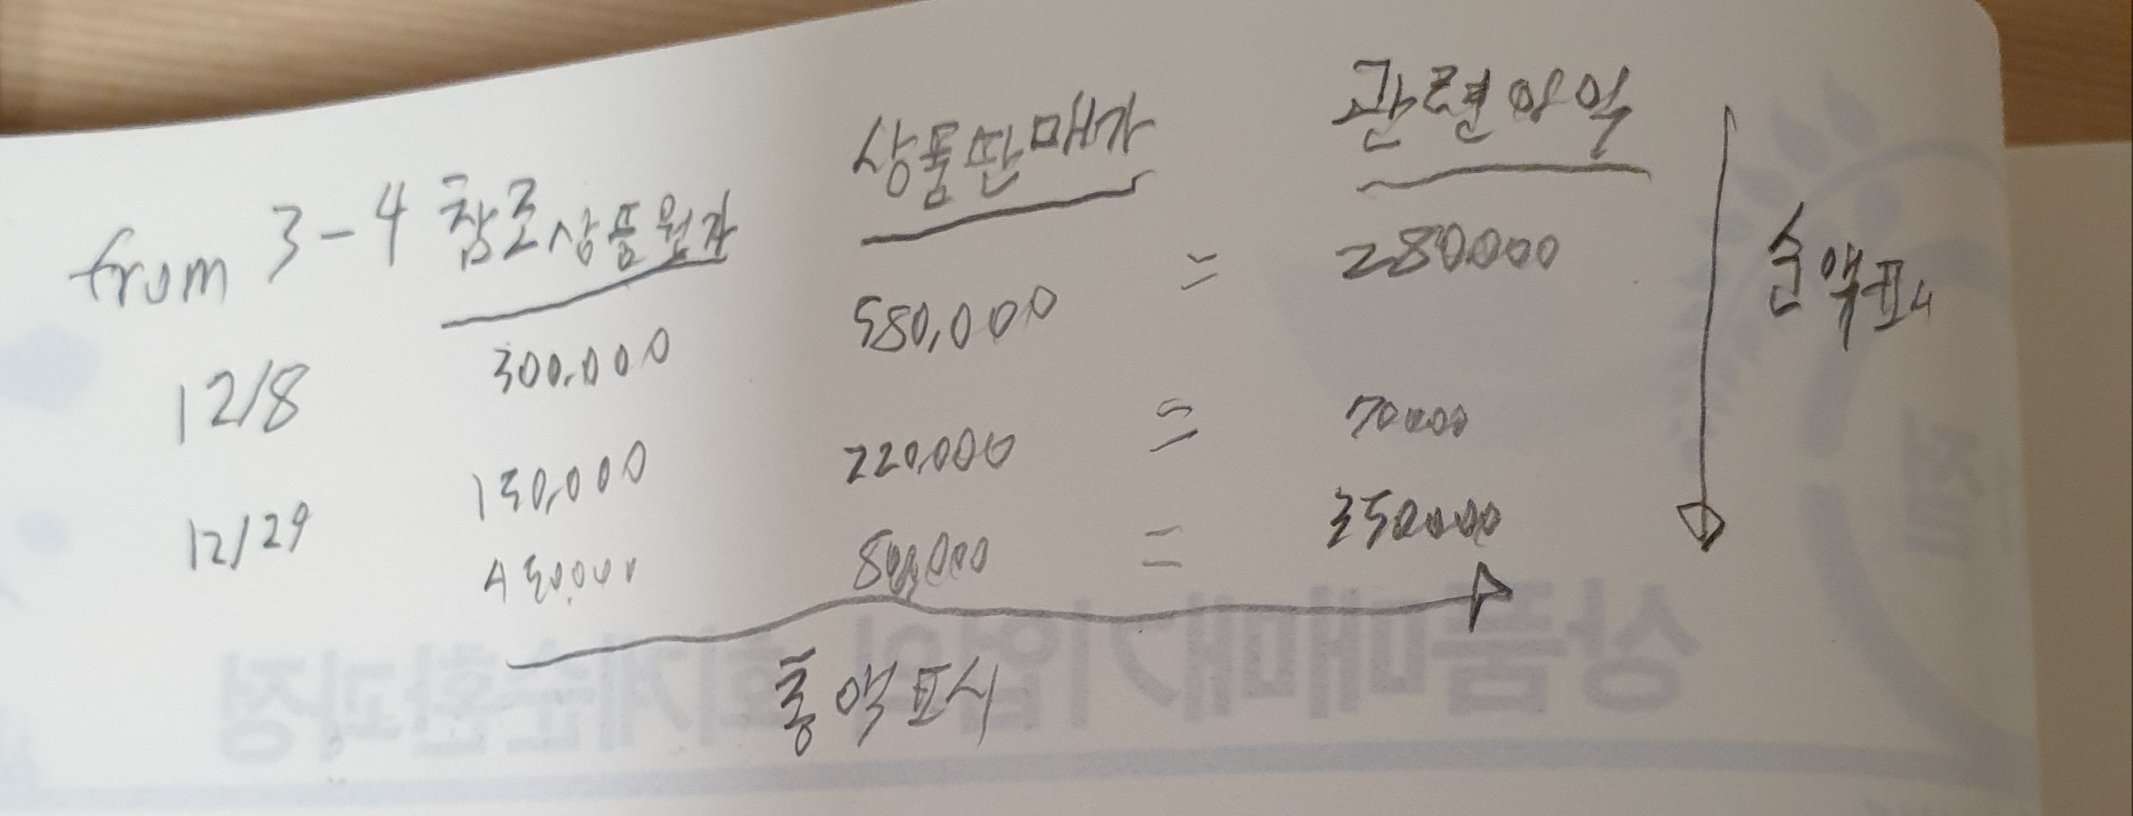 from 3-4 참조 상품원가 상품판매가 관련이익
12/8 300,000 580,000 = 280000
12/29 150,000 220,000 = 70000
450,000 800,000 = 350000
순액표시
총액표시
상품매매기업의 회계순환과정